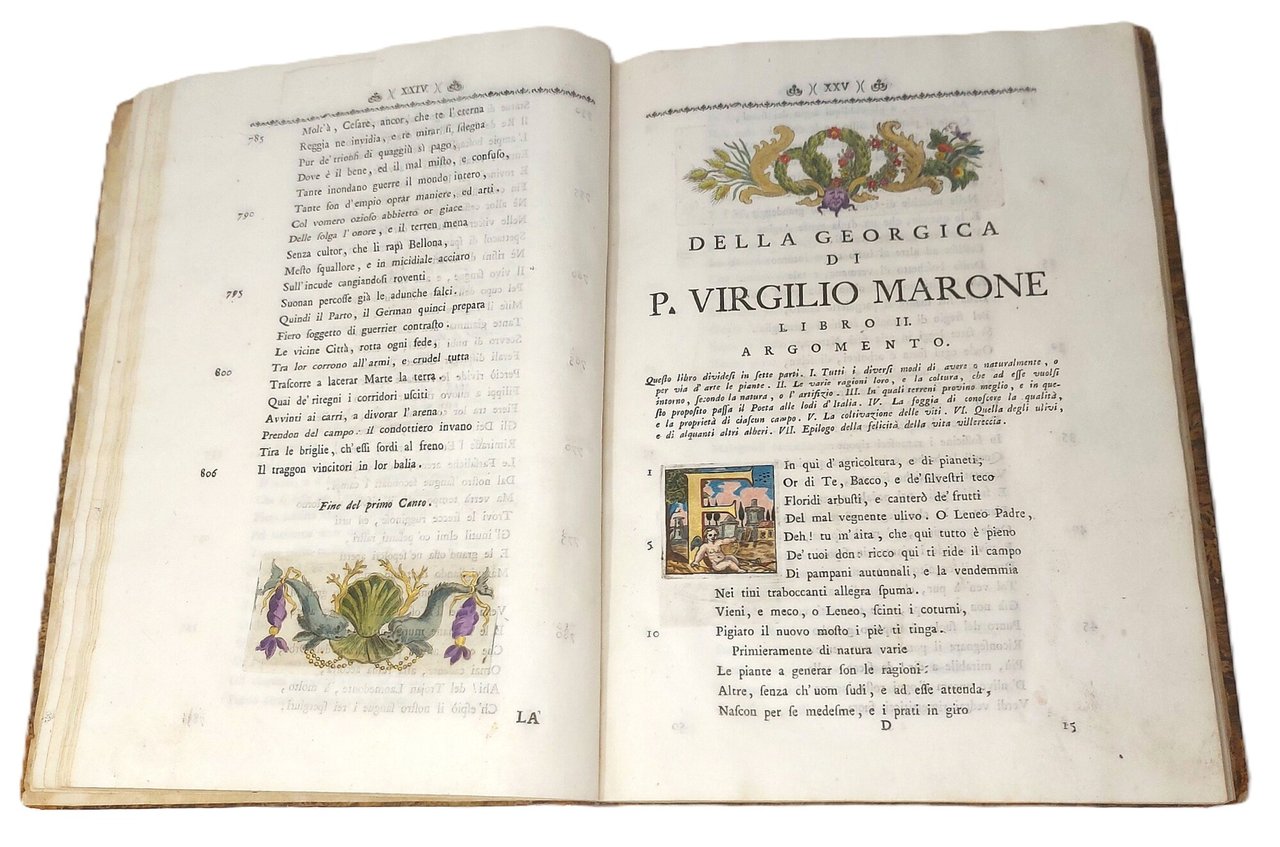 XXIV
785
Molt'à, Cesare, ancor, che te l'eterna
Reggia ne invidia, e te mirar si sdegna
Pur de' trionfi di quaggiù sì pago,
Dove è il bene, ed il mal misto, e confuso,
Tante inondano guerre il mondo intero,
Tante son d'empio oprar maniere, ed arti.
790
Col vomero ozioso abbietto or giace
Delle solga l'onore, e il terren mena
Senza cultor, che li rapì Bellona,
Mesto squallore, e in micidiale acciaro
Sull'incude cangiandosi roventi
795
Suonan percosse già le adunche falci.
Quindi il Parto, il German quinci prepara
Fiero soggetto di guerrier contrasto.
Le vicine Città, rotta ogni fede,
Tra lor corrono all'armi, e crudel tutta
800
Trascorre a lacerar Marte la terra.
Quai de' ritegni i corridori usciti
Avvinti ai carri, a divorar l'arena
Prendon del campo: il condottiero invano
Tira le briglie, ch'essi sordi al freno
806
Il traggon vincitori in lor balia.
Fine del primo Canto.
LA
XXV
DELLA GEORGICA
DI
P. VIRGILIO MARONE
LIBRO II.
ARGOMENTO.
Questo libro dividesi in sette parti. I. Tutti i diversi modi di avere o naturalmente, o
per via d'arte le piante. II. Le varie ragioni loro, e la coltura, che ad esse vuolsi
intorno, secondo la natura, o l'artifizio. III. In quai terreni provino meglio, e in que-
sto proposito passa il Poeta alle lodi d'Italia. IV. La foggia di conoscere la qualità,
e la proprietà di ciascun campo. V. La coltivazione delle viti. VI. Quella degli ulivi,
e di alquanti altri alberi. VII. Epilogo della felicità della vita villereccia.
1
F In qui d'agricoltura, e di pianeti;
Or di Te, Bacco, e de' silvestri teco
Floridi arbusti, e canterò de' frutti
Del mal vegnente ulivo. O Leneo Padre,
5
Deh! tu m'aita, che qui tutto è pieno
De' tuoi don: ricco qui ti ride il campo
Di pampani autunnali, e la vendemmia
Nei tini traboccanti allegra spuma.
Vieni, e meco, o Leneo, scinti i coturni,
10
Pigiato il nuovo mosto i piè ti tinga.
Primieramente di natura varie
Le piante a generar son le ragioni:
Altre, senza ch'uom sudi, e ad esse attenda,
Nascon per se medesme, e i prati in giro
D
15